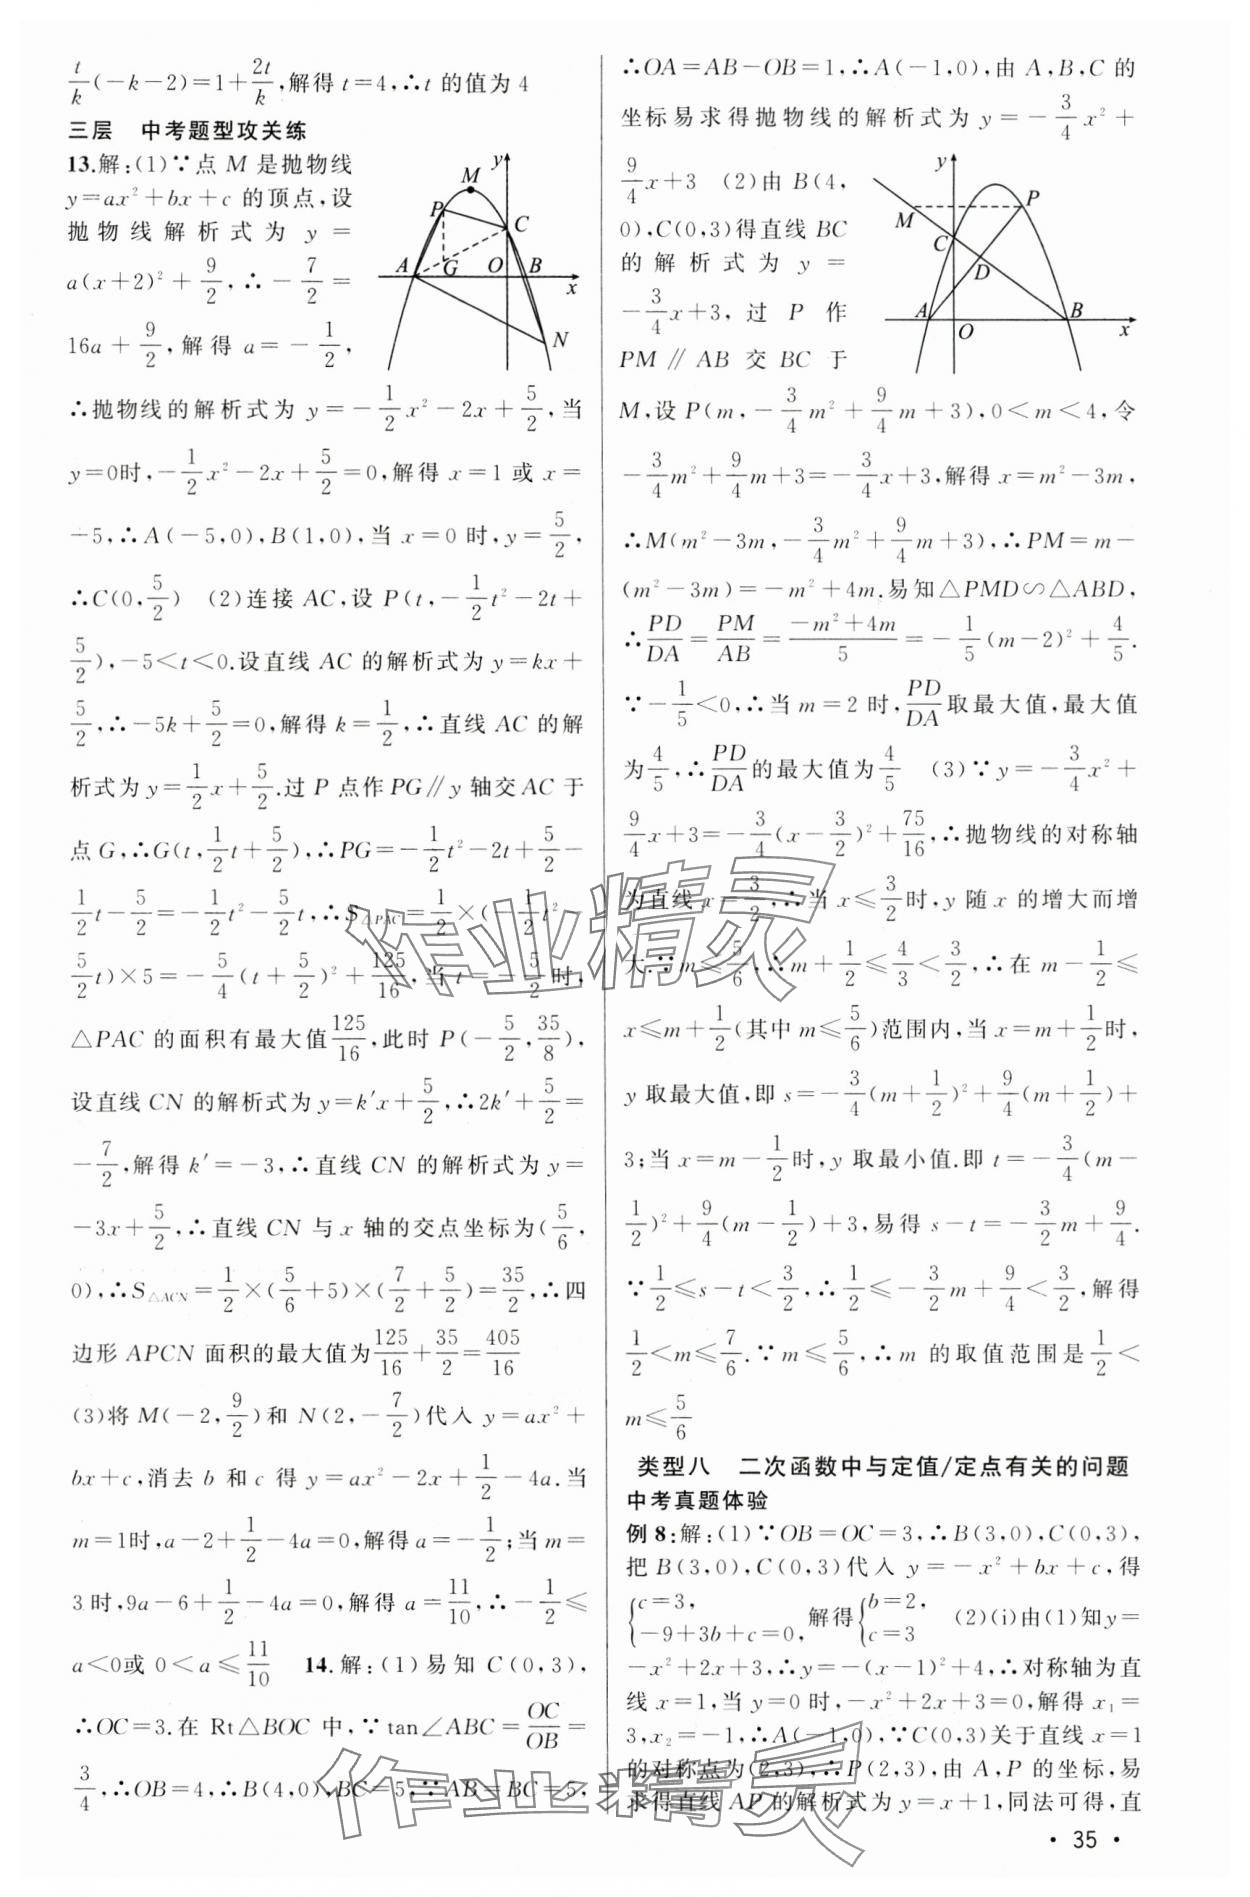 t/k(-k-2)=1+2t/k,解得t=4,∴t的值为4
三层 中考题型攻关练
13.解:(1)∵点M是抛物线
y=ax²+bx+c的顶点,设
抛物线解析式为y=
a(x+2)²+9/2,∴-7/2=
16a+9/2,解得a=-1/2,
∴抛物线的解析式为y=-1/2x²-2x+5/2,当
y=0时,-1/2x²-2x+5/2=0,解得x=1或x=
-5,∴A(-5,0),B(1,0),当x=0时,y=5/2,
∴C(0,5/2) (2)连接AC,设P(t,-1/2t²-2t+
5/2),-5<t<0.设直线AC的解析式为y=kx+
5/2,∴-5k+5/2=0,解得k=1/2,∴直线AC的解
析式为y=1/2x+5/2.过P点作PG∥y轴交AC于
点G,∴G(t,1/2t+5/2),∴PG=-1/2t²-2t+5/2-
1/2t-5/2=-1/2t²-5/2t,∴S△PAC=1/2×(-1/2t²-
5/2t)×5=-5/4(t+5/2)²+125/16,当t=-5/2时,
△PAC的面积有最大值125/16,此时P(-5/2,35/8),
设直线CN的解析式为y=k′x+5/2,∴2k′+5/2=
-7/2,解得k′=-3,∴直线CN的解析式为y=
-3x+5/2,∴直线CN与x轴的交点坐标为(5/6,
0),∴S△ACN=1/2×(5/6+5)×(7/2+5/2)=35/2,∴四
边形APCN面积的最大值为125/16+35/2=405/16
(3)将M(-2,9/2)和N(2,-7/2)代入y=ax²+
bx+c,消去b和c得y=ax²-2x+1/2-4a.当
m=1时,a-2+1/2-4a=0,解得a=-1/2;当m=
3时,9a-6+1/2-4a=0,解得a=11/10,∴-1/2≤
a<0或0<a≤11/10 14.解:(1)易知C(0,3),
∴OC=3.在Rt△BOC中,∵tan∠ABC=OC/OB=
3/4,∴OB=4,∴B(4,0),BC=5,∵AB=BC=5,
M
y
P
C
A
G
O
B
x
N
∴OA=AB-OB=1,∴A(-1,0),由A,B,C的
坐标易求得抛物线的解析式为y=-3/4x²+
9/4x+3 (2)由B(4,
0),C(0,3)得直线BC
的解析式为y=
-3/4x+3,过P作
PM∥AB交BC于
y
M
P
C
D
A
O
B
x
M,设P(m,-3/4m²+9/4m+3),0<m<4,令
-3/4m²+9/4m+3=-3/4x+3,解得x=m²-3m,
∴M(m²-3m,-3/4m²+9/4m+3),∴PM=m-
(m²-3m)=-m²+4m.易知△PMD∽△ABD,
∴PD/DA=PM/AB=(-m²+4m)/5=-1/5(m-2)²+4/5.
∵-1/5<0,∴当m=2时,PD/DA取最大值,最大值
为4/5,∴PD/DA的最大值为4/5 (3)∵y=-3/4x²+
9/4x+3=-3/4(x-3/2)²+75/16,∴抛物线的对称轴
为直线x=3/2,∴当x≤3/2时,y随x的增大而增
大.∵m≤5/6,∴m+1/2≤4/3<3/2,∴在m-1/2≤
x≤m+1/2(其中m≤5/6)范围内,当x=m+1/2时,
y取最大值,即s=-3/4(m+1/2)²+9/4(m+1/2)+
3;当x=m-1/2时,y取最小值.即t=-3/4(m-
1/2)²+9/4(m-1/2)+3,易得s-t=-3/2m+9/4.
∵1/2≤s-t<3/2,∴1/2≤-3/2m+9/4<3/2,解得
1/2<m≤7/6.∵m≤5/6,∴m的取值范围是1/2<
m≤5/6
类型八 二次函数中与定值/定点有关的问题
中考真题体验
例8:解:(1)∵OB=OC=3,∴B(3,0),C(0,3),
把B(3,0),C(0,3)代入y=-x²+bx+c,得
{c=3, -9+3b+c=0, 解得{b=2, c=3 (2)(i)由(1)知y=
-x²+2x+3,∴y=-(x-1)²+4,∴对称轴为直
线x=1,当y=0时,-x²+2x+3=0,解得x₁=
3,x₂=-1,∴A(-1,0),∵C(0,3)关于直线x=1
的对称点为(2,3),∴P(2,3),由A,P的坐标,易
求得直线AP的解析式为y=x+1,同法可得,直
作业精灵
作业精灵
·35·